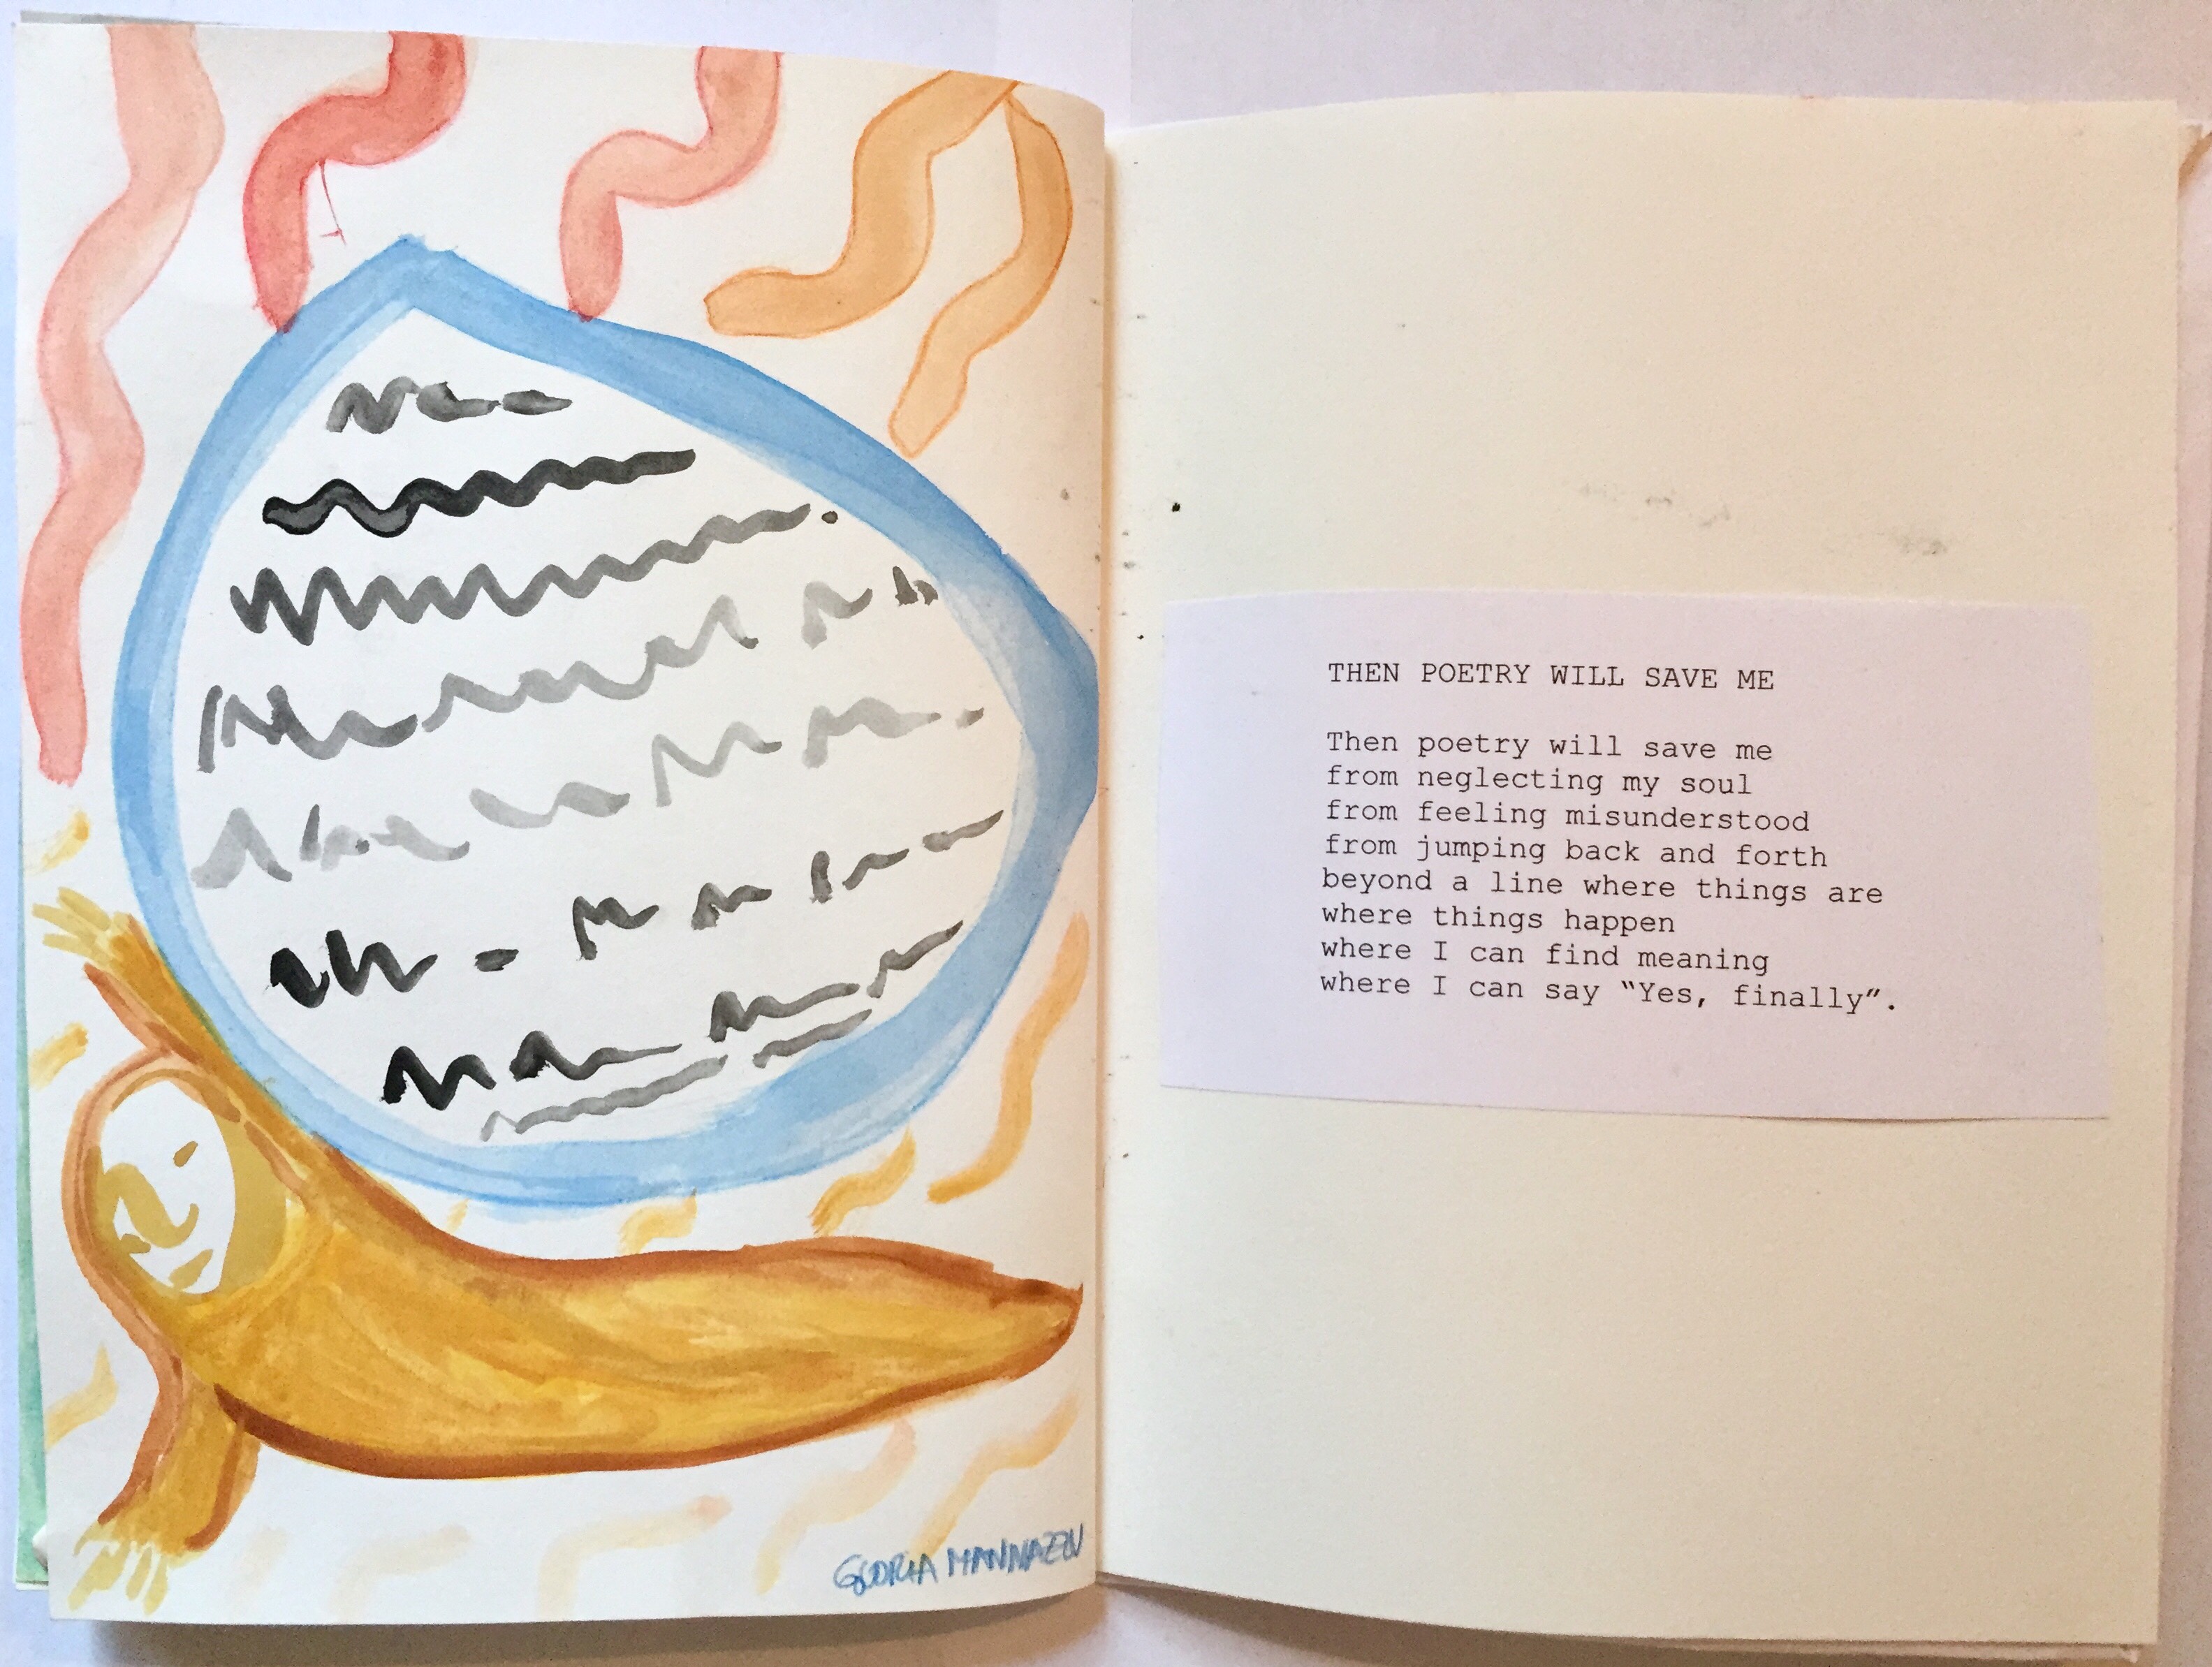 GLORIA MANNAZZU
THEN POETRY WILL SAVE ME
Then poetry will save me
from neglecting my soul
from feeling misunderstood
from jumping back and forth
beyond a line where things are
where things happen
where I can find meaning
where I can say “Yes, finally”.